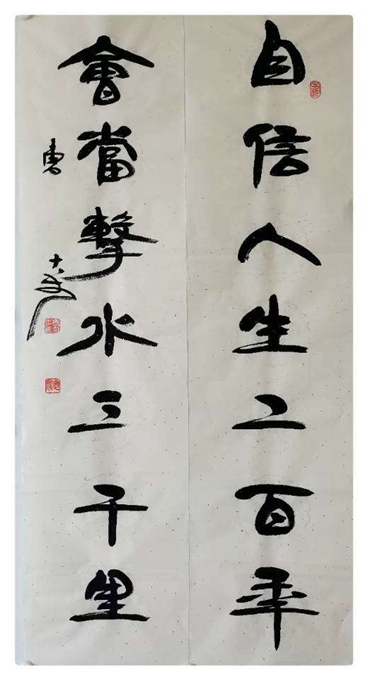 自信人生二百年
會當擊水三千里